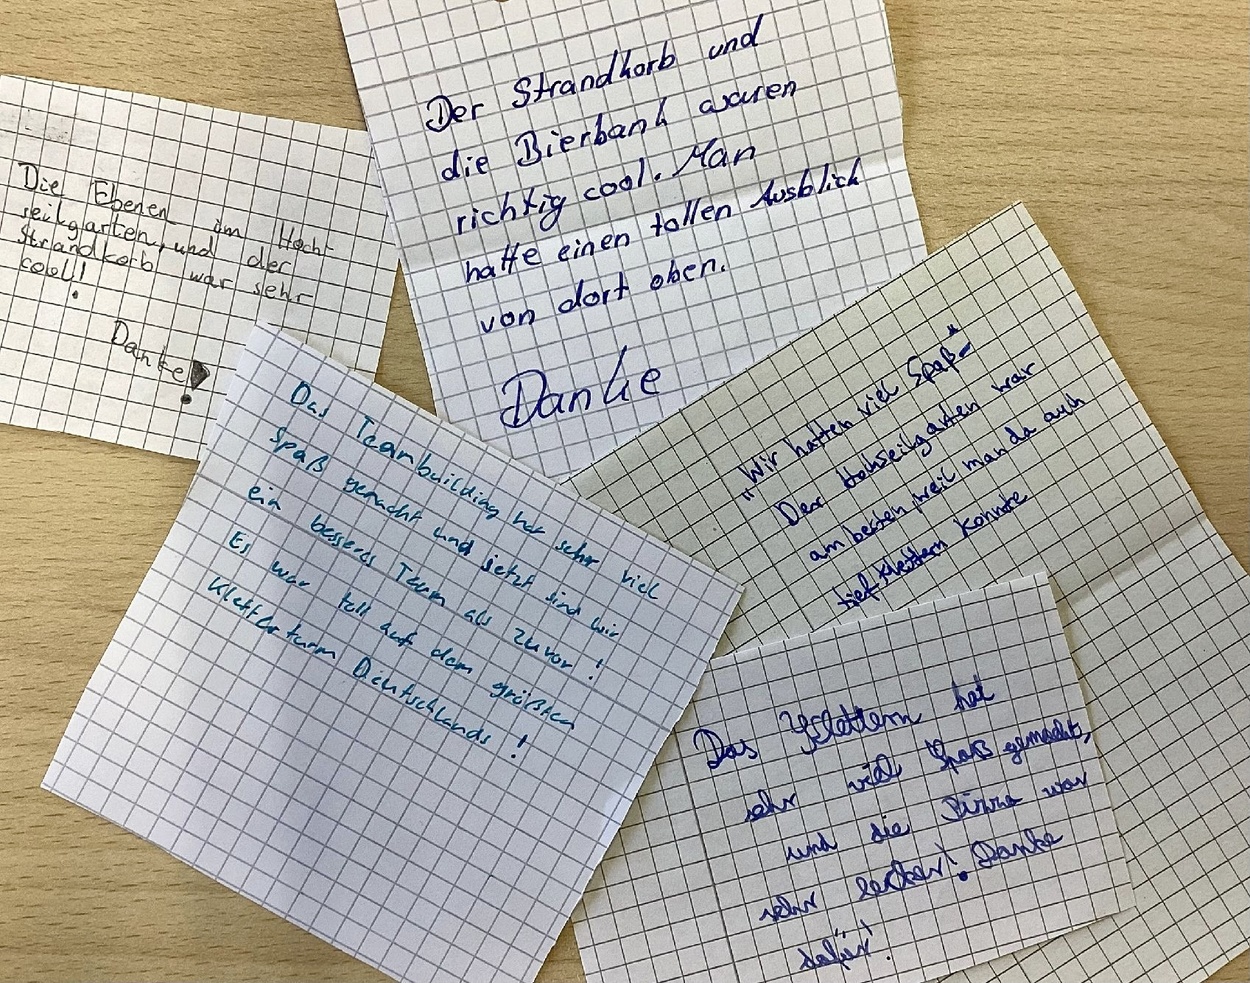 Die Ebenen im Hoch-
seilgarten, und der
Strandkorb war sehr
cool!
Danke!
Der Strandkorb und
die Bierbank waren
richtig cool. Man
hatte einen tollen Ausblick
von dort oben.
Danke
Das Teambuilding hat sehr viel
Spaß gemacht und jetzt sind wir
ein besseres Team als zuvor!
Es war toll auf dem größten
Kletterturm Deutschlands!
"Wir hatten viel Spaß"
Der Hochseilgarten war
am besten, weil man da auch
tief klettern konnte
Das Klettern hat
sehr viel Spaß gemacht,
und die Pizza war
sehr lecker! Danke
dafür!